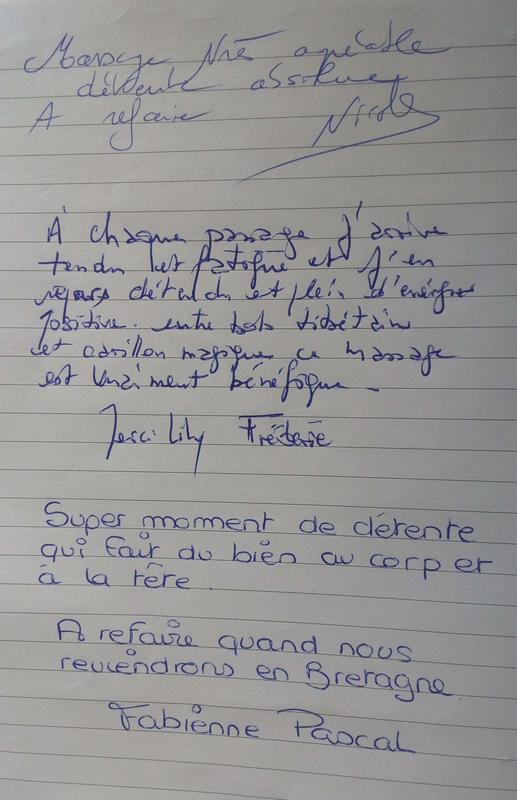 Massage très agréable
détente absolue
A refaire Nicole
A chaque passage j'arrive
tendu et fatigué et j'en
repars détendu et plein d'énergie
positive. entre bols tibétain
et carillon magique ce massage
est vraiment bénéfique.
Merci Lily Frédéric
Super moment de détente
qui fait du bien au corp et
à la tête.
A refaire quand nous
reviendrons en Bretagne.
Fabienne Pascal